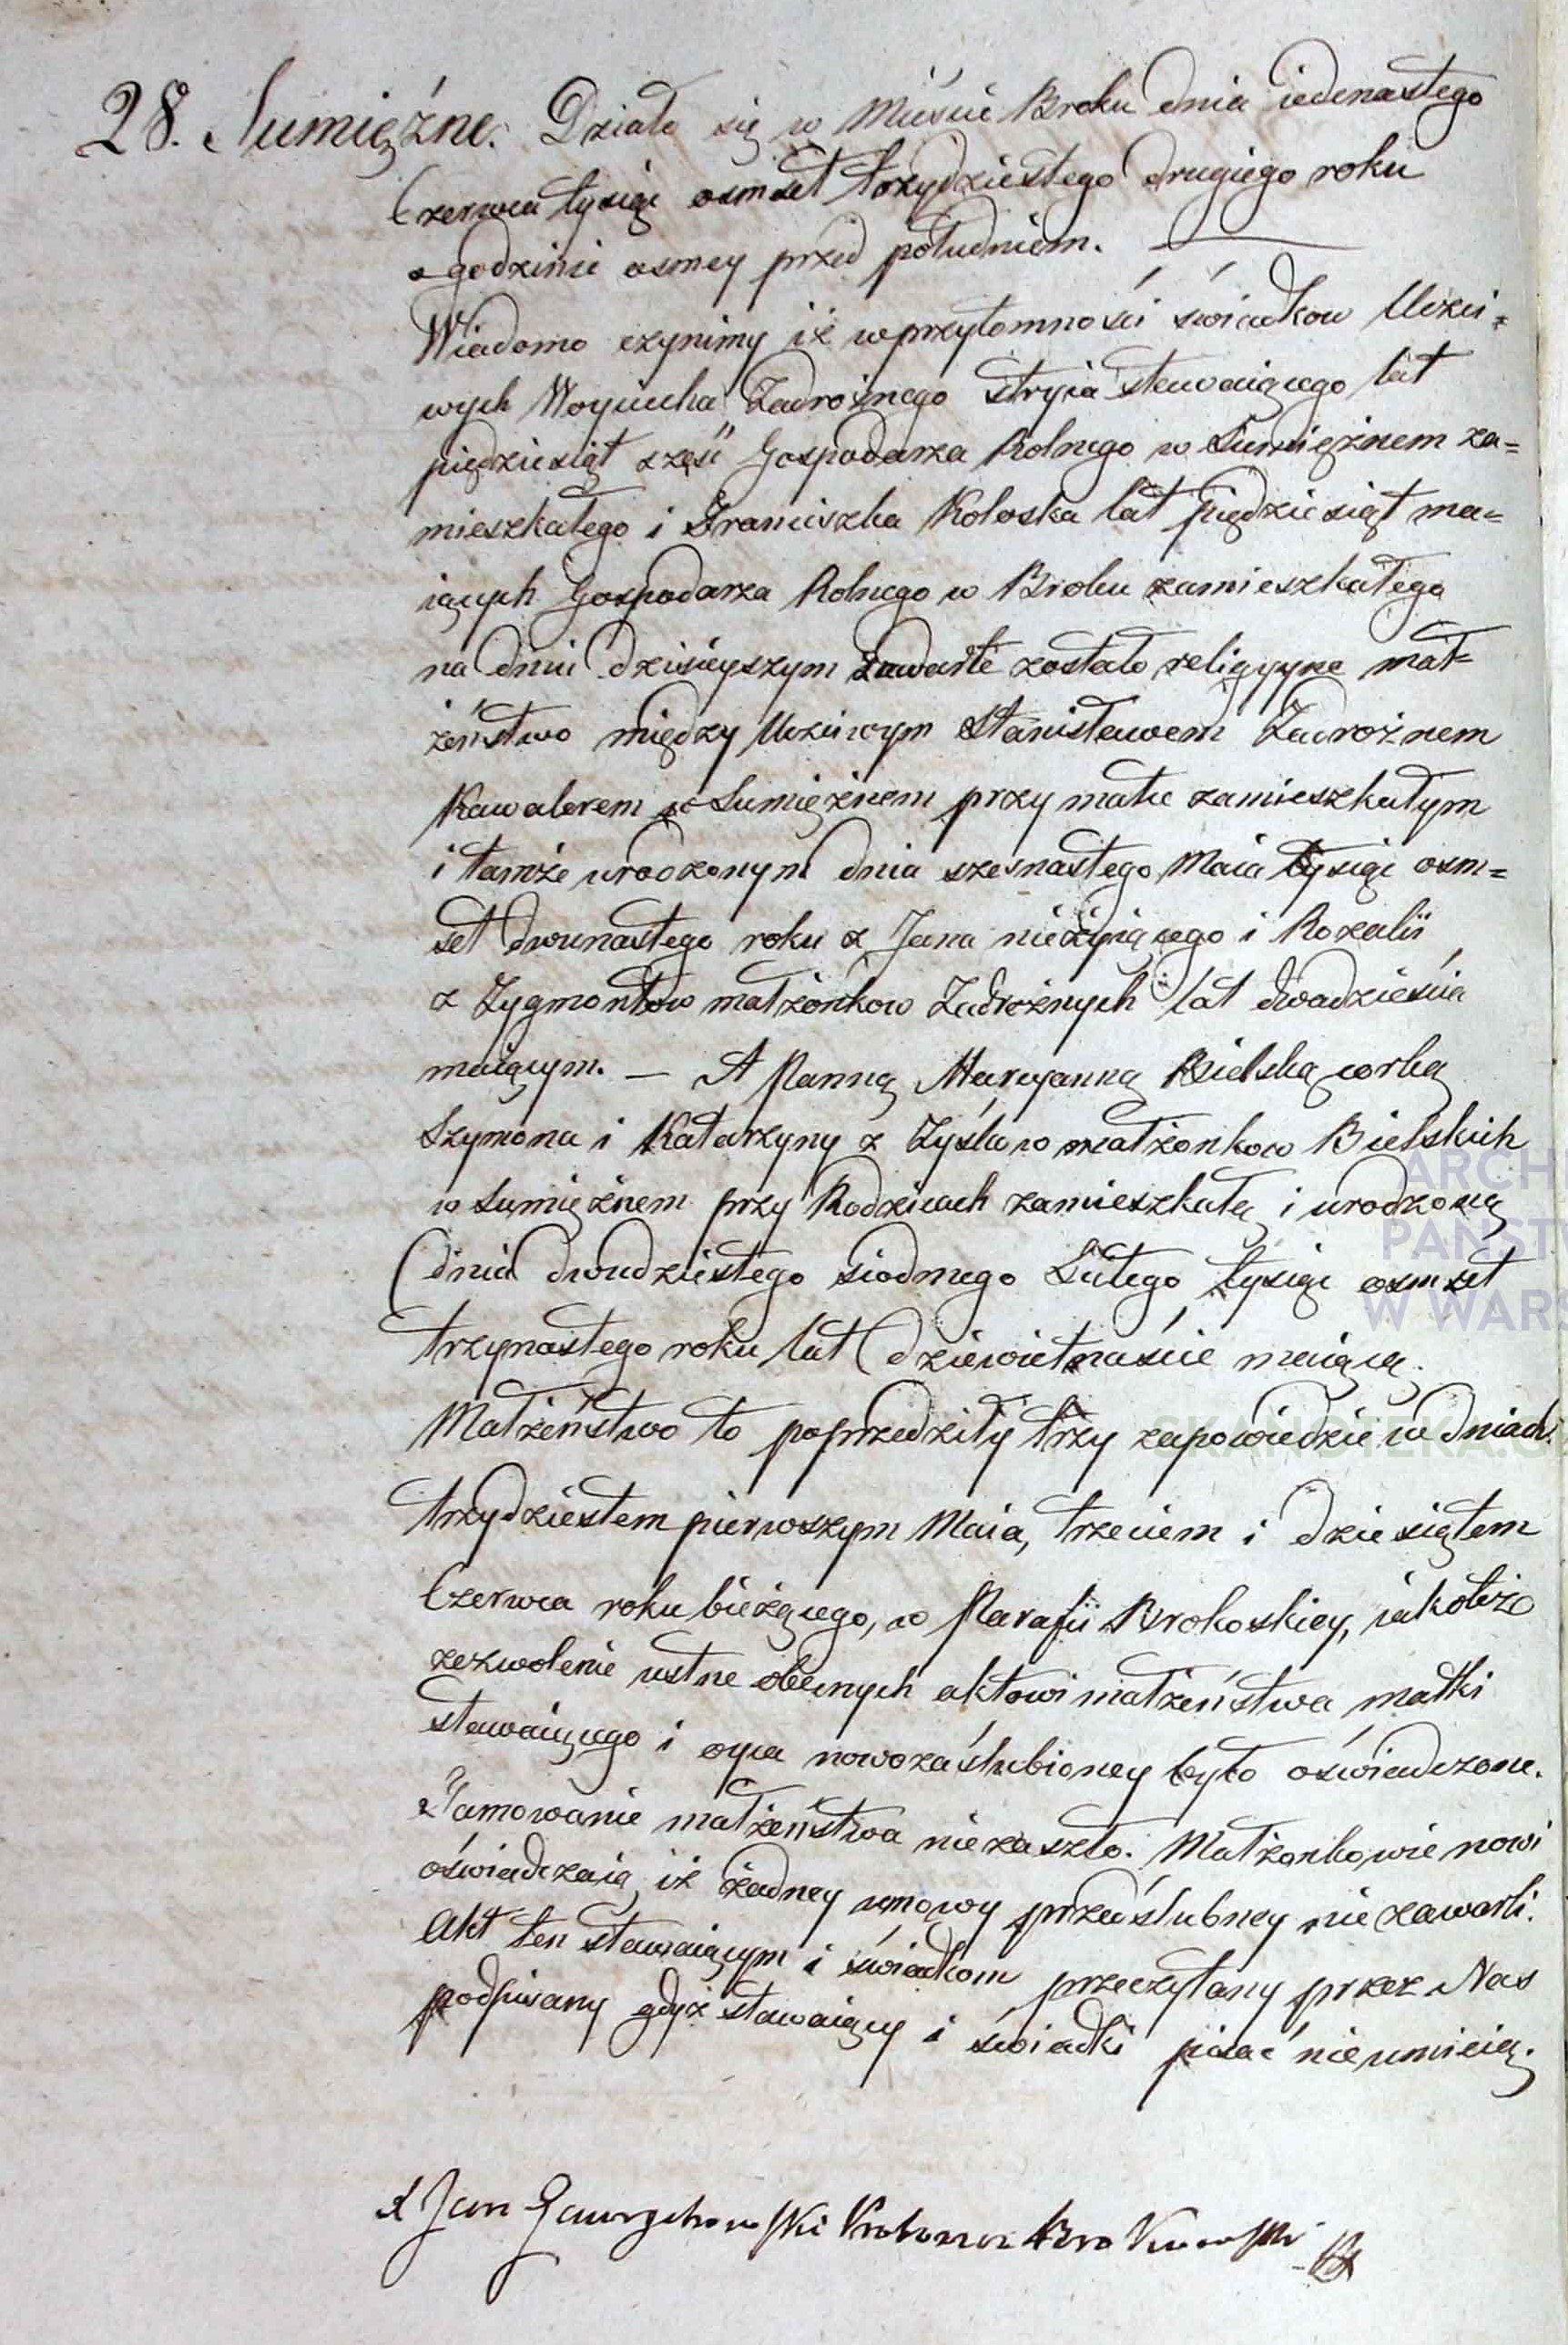 28. Sumiężne. Działo się w Mieście Broku dnia iedenastego
Czerwca tysiąc osmset trzydziestego drugiego roku
o godzinie osmey przed południem.
Wiadomo czynimy iż w przytomności świadkow Uczci=
wych Woyciecha Zadrożnego stryia stawaiącego lat
pięcdziesiąt sześć Gospodarza Rolnego w Sumiężnem za=
mieszkałego i Franciszka Koloska lat pięcdziesiąt ma=
iących Gospodarza Rolnego w Broku zamieszkałego
na dniu dzisieyszym zawarte zostało religyyne mał=
żeństwo między Uczciwym Stanisławem Zadrożnem
Kawalerem w Sumiężnem przy matce zamieszkałym
i tamże urodzonym dnia szesnastego Maia tysiąc osm=
set dwunastego roku z Jana nieżyiącego i Rozalii
z Zygmontow małżonkow Zadrożnych lat dwadzieścia
maiącym. — A Panną Maryanną Bielską corką
Szymona i Katarzyny z Zyśkow małżonkow Bielskich
w Sumiężnem przy Rodzicach zamieszkałą i urodzoną
dnia dwudziestego siodmego Lutego tysiąc osmset
trzynastego roku lat dziewietnaście maiącą.
Małżeństwo to poprzedziły trzy zapowiedzie w dniach
trzydziestem pierwszym Maia, trzeciem i dziesiątem
Czerwca roku bieżącego, w Parafii Brokoskiey, iakoteż
zezwolenie ustne obecnych aktowi małżeństwa matki
stawaiącego i oyca nowozaślubioney było oświadczone.
Tamowanie małżeństwa nie zaszło. Małżonkowie nowi
oświadczaią iż żadney umowy przedślubney nie zawarli.
Akt ten stawaiącym i świadkom przeczytany przez Nas
podpisany gdyż stawaiący i świadki pisać nieumieią.
X Jan Proboszcz
ARCH
PAŃSTW
W WARS
SKANOTEKA.G